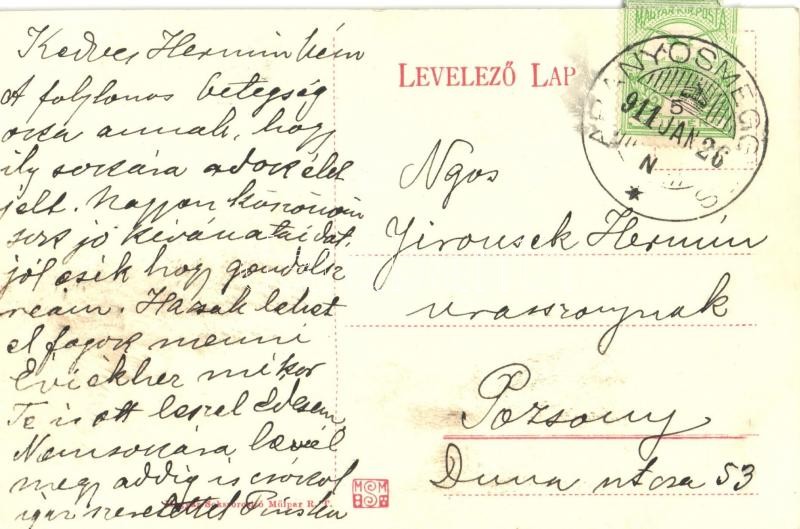 Kedves Herminkém
A folytonos betegség
oka annak, hogy
ily sokára adok élet
jelt. Nagyon köszönöm
sok jó kivánataidat.
jól esik hogy gondolsz
reám. Ha csak lehet
el fogok menni
Éviékhez mikor
Te is ott leszel Édesem
Nemsokára levél
megy addig is csókol
igaz szeretettel
Magyar Sokszorosító Műipar R. T.
MSM
MAGYAR KIR. POSTA
LEVELEZŐ LAP
ARANYOSMEGGYES
911 JAN 26
N 5
Ngos
Jirousek Hermin
urasszonynak
Pozsony
Duna utcza 53